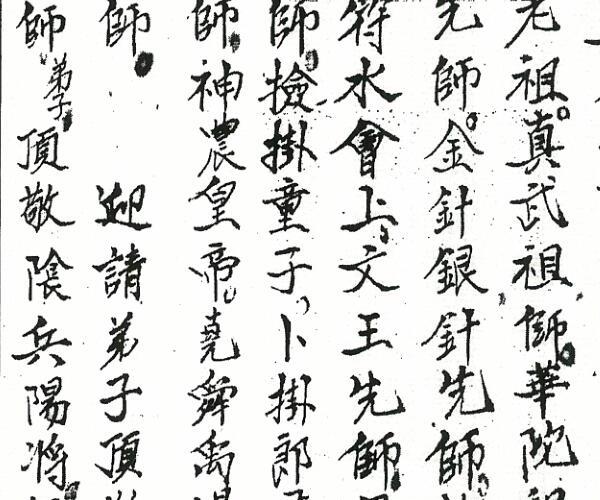 老祖真武祖師華陀
先師金針銀針先師
符水會上文王先師
師撿掛童子卜掛郎
師神農皇帝堯舜禹
師 迎請弟子頂
師弟子頂敬陰兵陽將